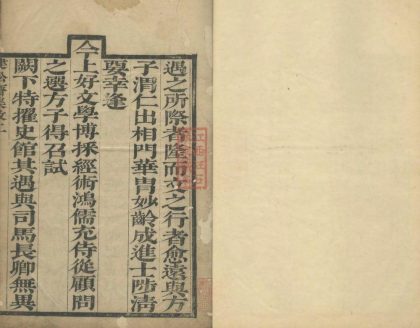 遇之所際者隆而立之行者愈遠與方
子渭仁出相門華胄妙齡成進士陟清
要幸逢
今上好文學博採經術鴻儒充侍從顧問
之選方子得召試
闕下特擢史館其遇與司馬長卿無異